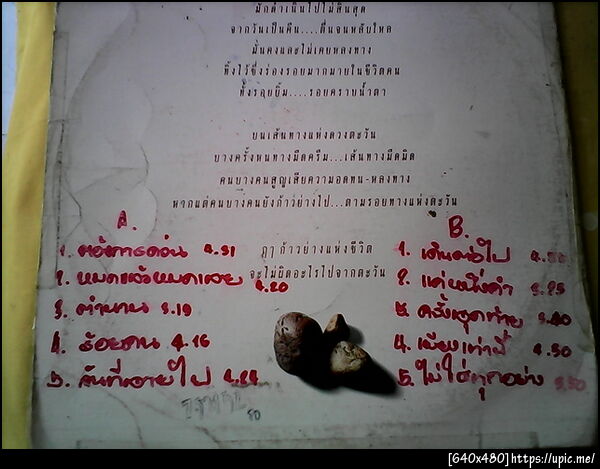 มักดำเนินไปไม่สิ้นสุด
จากวันเป็นคืน....ตื่นจนหลับใหล
มั่นคงและไม่เคยหลงทาง
ทิ้งไว้ซึ่งร่องรอยมากมายในชีวิตคน
ทั้งรอยยิ้ม....รอยคราบน้ำตา
บนเส้นทางแห่งดวงตะวัน
บางครั้งหนทางมืดครึ้ม...เส้นทางมืดมิด
คนบางคนสูญเสียความอดทน-หลงทาง
หากแต่คนบางคนยังก้าวย่างไป...ตามรอยทางแห่งตะวัน
ฤๅ ก้าวย่างแห่งชีวิต
จะไม่ผิดอะไรไปจากตะวัน
A.
1. 4.31
2. หมดแล้วหมดเลย 4.20
3. ตำนาน 3.19
4. ร้อยคน 4.16
5. วันที่หายไป
B.
1. เดินต่อไป
2. แค่หนึ่งคำ
3. ครั้งสุดท้าย
4. เพียงเท่านี้ 4.50
5. ไม่ใช่ทุกอย่าง
[640x480]https://upic.me/